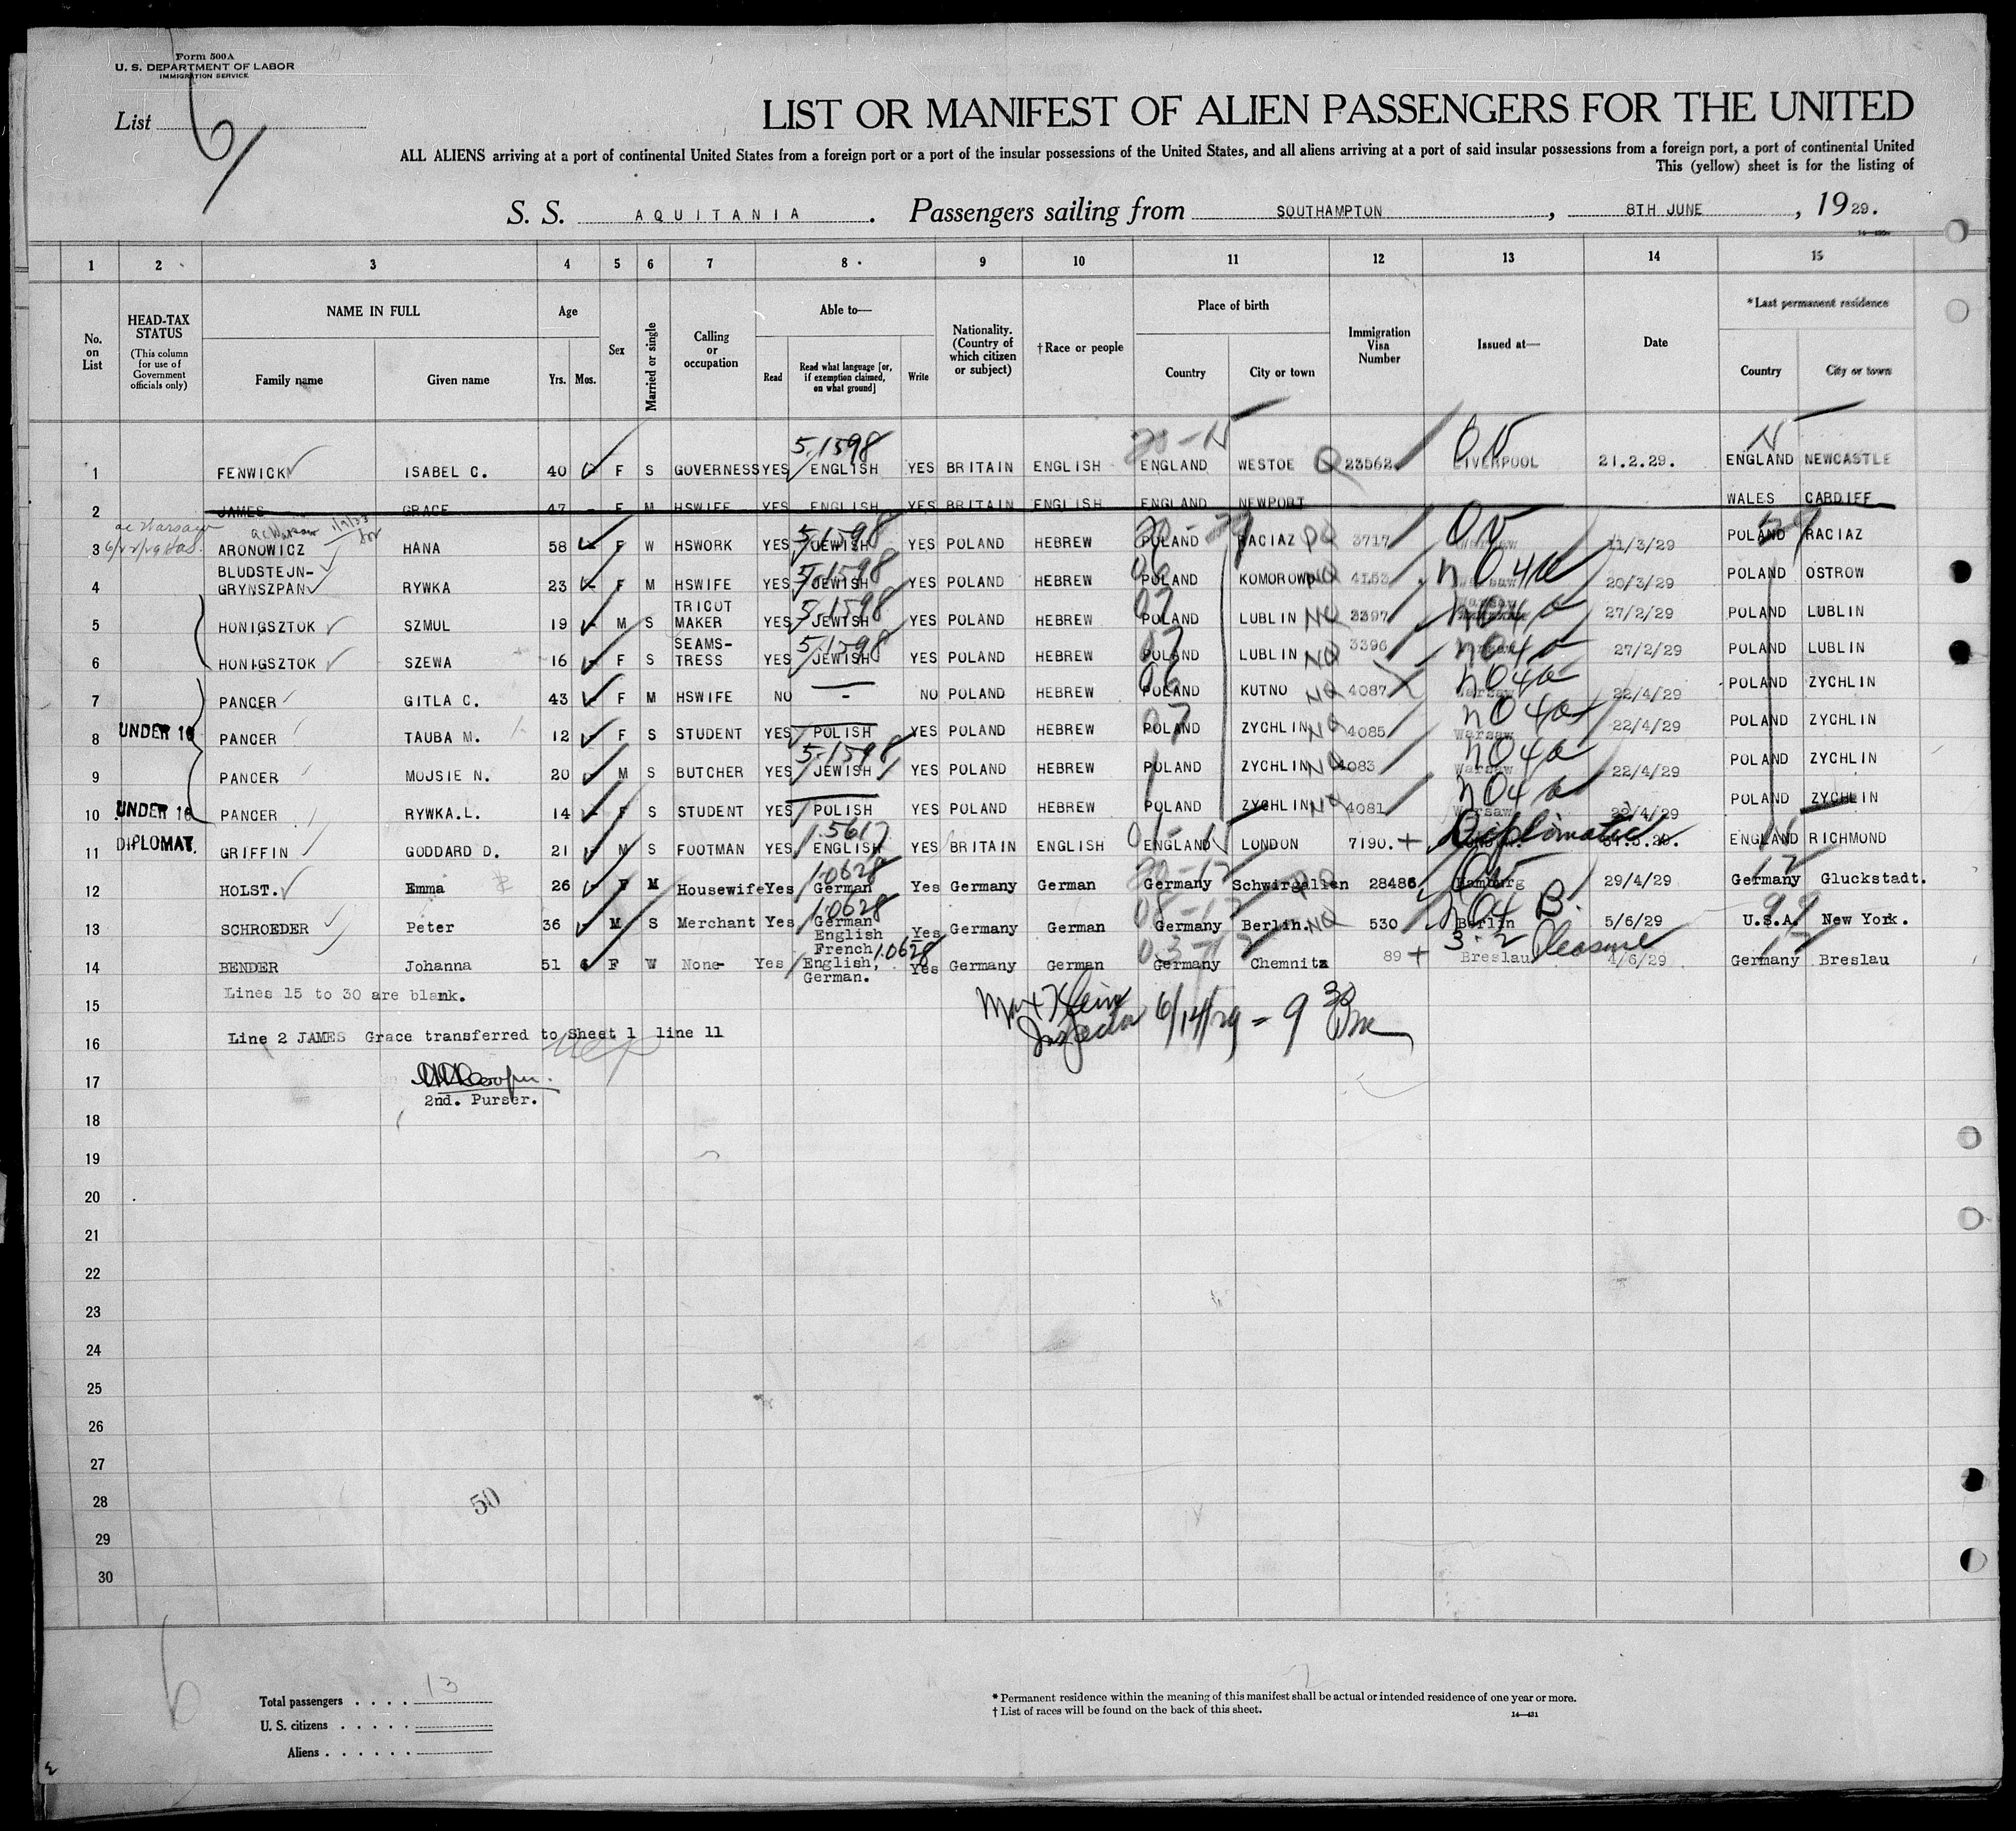 Form 500 A
U. S. DEPARTMENT OF LABOR
IMMIGRATION SERVICE
List 6
LIST OR MANIFEST OF ALIEN PASSENGERS FOR THE UNITED
ALL ALIENS arriving at a port of continental United States from a foreign port or a port of the insular possessions of the United States, and all aliens arriving at a port of said insular possessions from a foreign port, a port of continental United
This (yellow) sheet is for the listing of
S. S. AQUITANIA. Passengers sailing from SOUTHAMPTON, 8TH JUNE, 1929.
1 2 3 4 5 6 7 8 9 10 11 12 13 14 15
No. on List
HEAD-TAX STATUS (This column for use of Government officials only)
NAME IN FULL Family name Given name
Age Yrs. Mos.
Sex
Married or single
Calling or occupation
Able to— Read Read what language [or, if exemption claimed, on what ground] Write
Nationality. (Country of which citizen or subject)
†Race or people
Place of birth Country City or town
Immigration Visa Number
Issued at—
Date
*Last permanent residence Country City or town
5-1598 20-N OV N
1 FENWICK ISABEL C. 40 F S GOVERNESS YES ENGLISH YES BRITAIN ENGLISH ENGLAND WESTOE Q 23562 LIVERPOOL 21.2.29. ENGLAND NEWCASTLE
2 JAMES GRACE 47 - F M HSWIFE YES ENGLISH YES BRITAIN ENGLISH ENGLAND NEWPORT WALES CARDIFF
ac Warsaw 5-1598 OV
3 ARONOWICZ HANA 58 F W HSWORK YES JEWISH YES POLAND HEBREW POLAND RACIAZ 3717 Warsaw 11/3/29 POLAND RACIAZ
BLUDSTEJN- 5-1598 n04a
4 GRYNSZPAN RYWKA 23 F M HSWIFE YES JEWISH YES POLAND HEBREW POLAND KOMOROWO NQ 4153 Warsaw 20/3/29 POLAND OSTROW
TRICOT 5-1598 07 n04a
5 HONIGSZTOK SZMUL 19 M S MAKER YES JEWISH YES POLAND HEBREW POLAND LUBLIN NQ 3397 Warsaw 27/2/29 POLAND LUBLIN
SEAMS- 5-1598 07 n04a
6 HONIGSZTOK SZEWA 16 F S TRESS YES JEWISH YES POLAND HEBREW POLAND LUBLIN NQ 3396 Warsaw 27/2/29 POLAND LUBLIN
06 n04a
7 PANCER GITLA C. 43 F M HSWIFE NO - NO POLAND HEBREW POLAND KUTNO NQ 4087 Warsaw 22/4/29 POLAND ZYCHLIN
07 n04a
8 UNDER 16 PANCER TAUBA M. 12 F S STUDENT YES POLISH YES POLAND HEBREW POLAND ZYCHLIN NQ 4085 Warsaw 22/4/29 POLAND ZYCHLIN
5-1598 n04a
9 PANCER MOJSIE N. 20 M S BUTCHER YES JEWISH YES POLAND HEBREW POLAND ZYCHLIN NQ 4083 Warsaw 22/4/29 POLAND ZYCHLIN
n04a
10 UNDER 16 PANCER RYWKA.L. 14 F S STUDENT YES POLISH YES POLAND HEBREW POLAND ZYCHLIN NQ 4081 Warsaw 22/4/29 POLAND ZYCHLIN
1.5617 Diplomatic
11 DIPLOMAT. GRIFFIN GODDARD D. 21 M S FOOTMAN YES ENGLISH YES BRITAIN ENGLISH ENGLAND LONDON 7190. + ENGLAND RICHMOND
1.0628 20-17 OV 17
12 HOLST. Emma 26 F M Housewife Yes German Yes Germany German Germany Schwirgallen 28486 Hamburg 29/4/29 Germany Gluckstadt.
1.0628 08-17 n04 B. 99
13 SCHROEDER Peter 36 M S Merchant Yes German English Yes Germany German Germany Berlin. NQ 530 Berlin 5/6/29 U.S.A. New York.
1.0628 3-2 Pleasure 17
14 BENDER Johanna 51 F W None- Yes French English, German. Yes Germany German Germany Chemnitz 89 + Breslau 4/6/29 Germany Breslau
15 Lines 15 to 30 are blank.
Max Klein 6/14/29 = 9 30 Pm
Inspector
16 Line 2 JAMES Grace transferred to Sheet 1 line 11
17
2nd. Purser.
18
19
20
21
22
23
24
25
26
27
28
50
29
30
6
Total passengers . . . . 13
U. S. citizens . . . . .
Aliens . . . . . .
* Permanent residence within the meaning of this manifest shall be actual or intended residence of one year or more.
† List of races will be found on the back of this sheet.
14—431